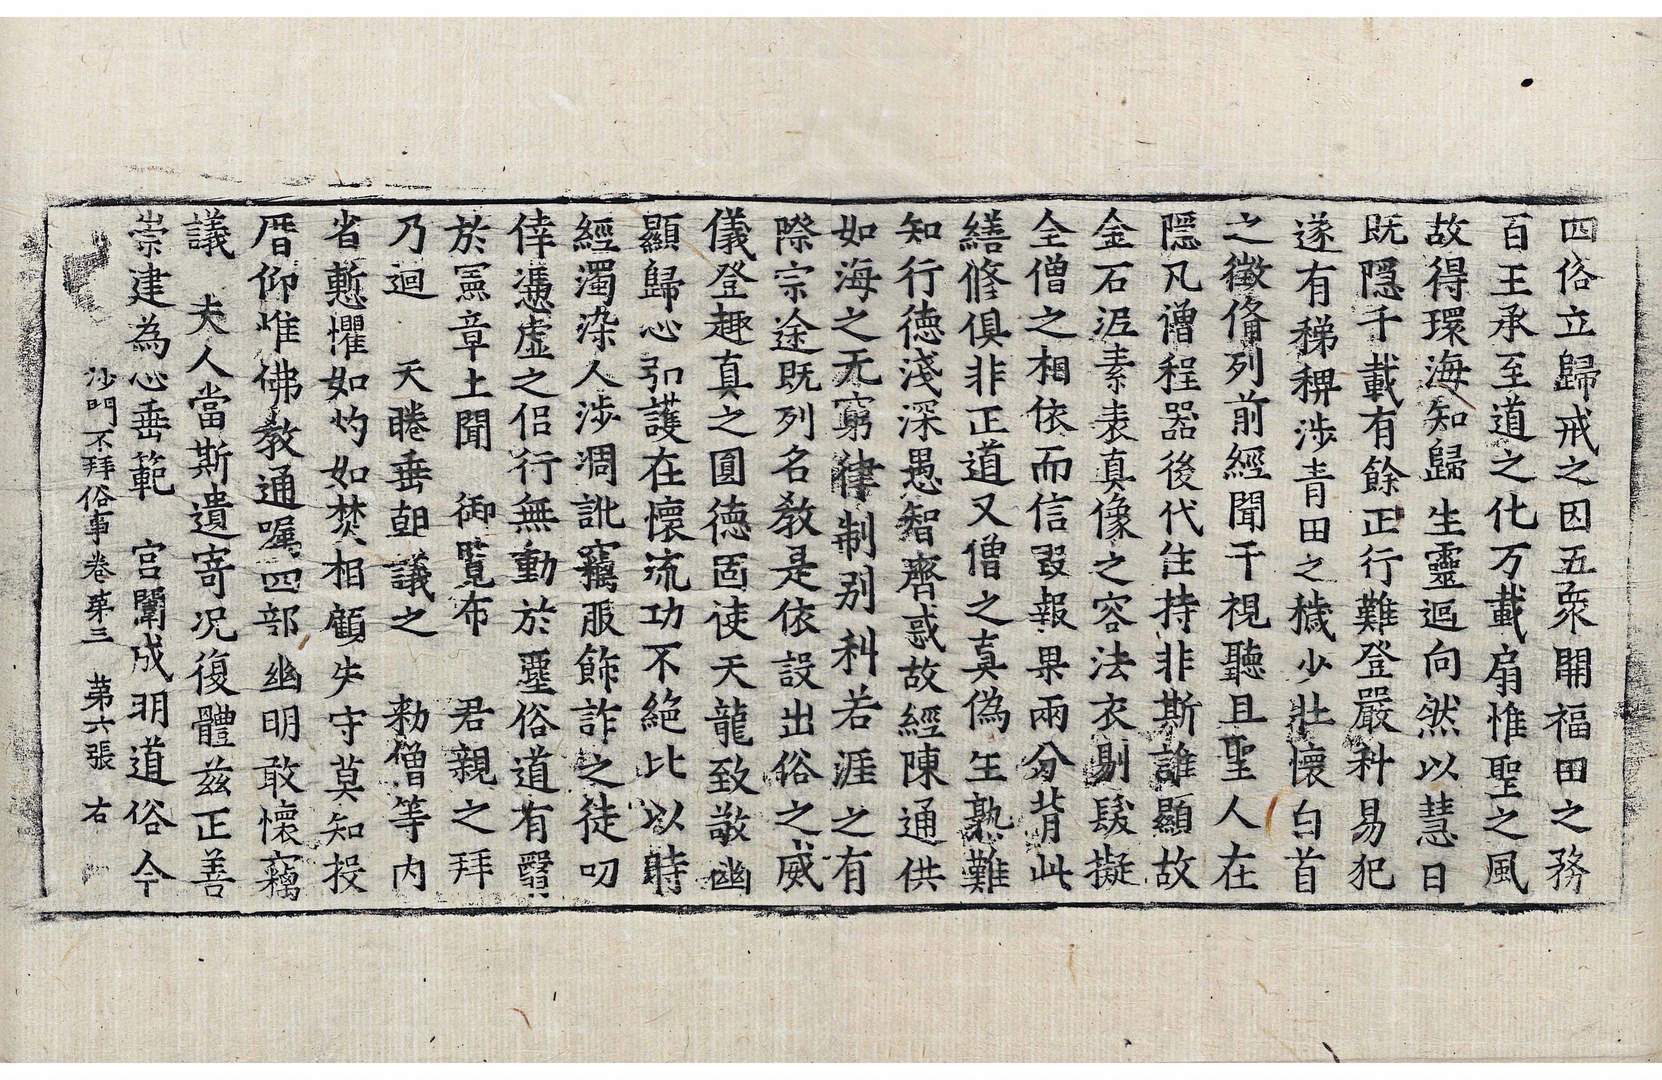 四俗立歸戒之因五衆開福田之務
百王承至道之化万載扇惟聖之風
故得環海知歸生靈迴向然以慧日
既隱千載有餘正行難登嚴科易犯
遂有稊稗涉青田之穢少壯懷白首
之徵俻列前經聞于視聽且聖人在
隱凡僧程器後代住持非斯誰顯故
金石泥素表真像之容法衣剔髮擬
全僧之相依而信毀報果兩分背此
繕修俱非正道又僧之真偽生熟難
知行德淺深愚智齊惑故經陳通供
如海之无窮律制别科若涯之有
際宗途既列名教是依設出俗之威
儀登趣真之圓德固使天龍致敬幽
顯歸心弘護在懷流功不絕比以時
經濁染人涉凋訛竊服飾詐之徒叨
倖憑虛之侣行無動於塵俗道有翳
於憲章上聞 御覽布 君親之拜
乃迴 天睠垂朝議之 勑僧等内
省慙懼如灼如焚相顧失守莫知投
厝仰惟佛教通囑四部幽明敢懷竊
議 夫人當斯遺寄况復體兹正善
崇建為心垂範 宮闈成明道俗今
沙門不拜俗事卷第三 第六張 右